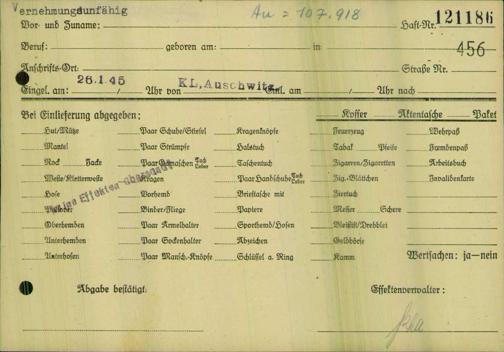 Vernehmungsunfähig Au = 107.918
Vor- und Zuname: Haft-Nr. 121186
Beruf: geboren am: in 456
Anschrifts-Ort: Straße Nr.
Eingel. am: 26.1.45 / Uhr von KL. Auschwitz Entl. am / Uhr nach
Bei Einlieferung abgegeben: Koffer Aktentasche Paket
Hut/Mütze Paar Schuhe/Stiefel Kragenknöpfe Feuerzeug Wehrpaß
Mantel Paar Strümpfe Halstuch Tabak Pfeife Fremdenpaß
Rock Jacke Paar Gamaschen Tuch Leder Taschentuch Zigarren/Zigaretten Arbeitsbuch
Weste/Kletterweste Kragen Paar Handschuhe Tuch Leder Zig.-Blättchen Invalidenkarte
Hose Vorhemd Brieftasche mit Ziertuch
Pullover Binder/Fliege Papiere Messer Schere
Oberhemden Paar Ärmelhalter Sporthemd/Hosen Bleistift/Drehblei
Unterhemden Paar Sockenhalter Abzeichen Geldbörse
Unterhosen Paar Mansch.-Knöpfe Schlüssel a. Ring Kamm Wertsachen: ja—nein
Keine Effekten übersandt
Abgabe bestätigt: Effektenverwalter: